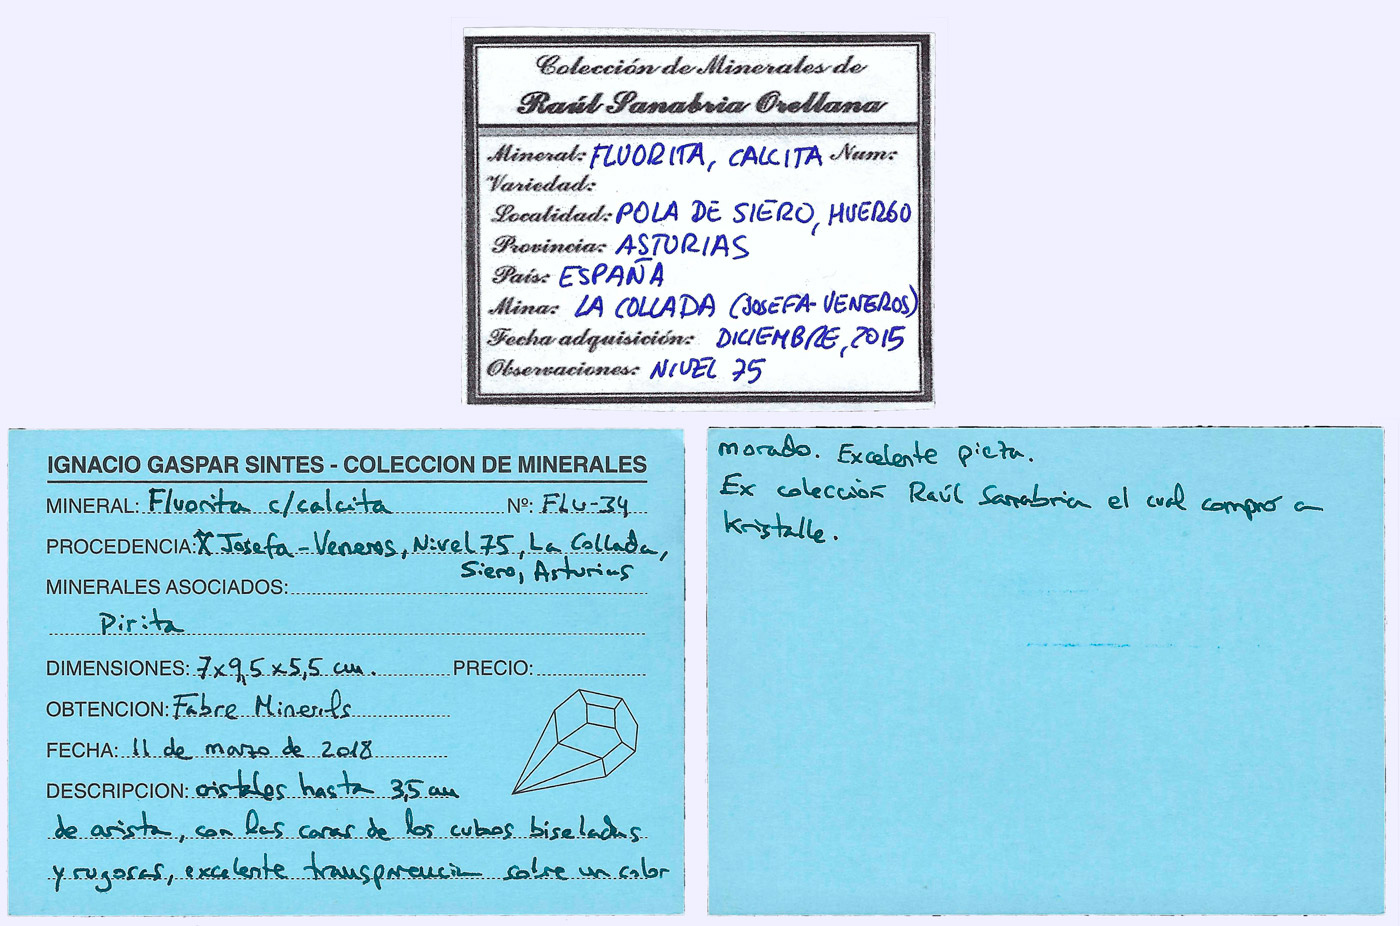 Colección de Minerales de
Raúl Sanabria Orellana
Mineral: FLUORITA, CALCITA Num:
Variedad:
Localidad: POLA DE SIERO, HUERGO
Provincia: ASTURIAS
País: ESPAÑA
Mina: LA COLLADA (JOSEFA-VENEROS)
Fecha adquisición: DICIEMBRE, 2015
Observaciones: NIVEL 75
IGNACIO GASPAR SINTES - COLECCION DE MINERALES
MINERAL: Fluorita c/calcita Nº: FLU-34
PROCEDENCIA: Josefa-Veneros, Nivel 75, La Collada,
Siero, Asturias
MINERALES ASOCIADOS:
Pirita
DIMENSIONES: 7x9,5x5,5 cm. PRECIO:
OBTENCION: Fabre Minerals
FECHA: 11 de marzo de 2018
DESCRIPCION: cristales hasta 3,5 cm
de arista, con las caras de los cubos biseladas
y rugosas, excelente transparencia sobre un color
morado. Excelente pieza.
Ex colección Raúl Sanabria el cual compró a
Kristalle.